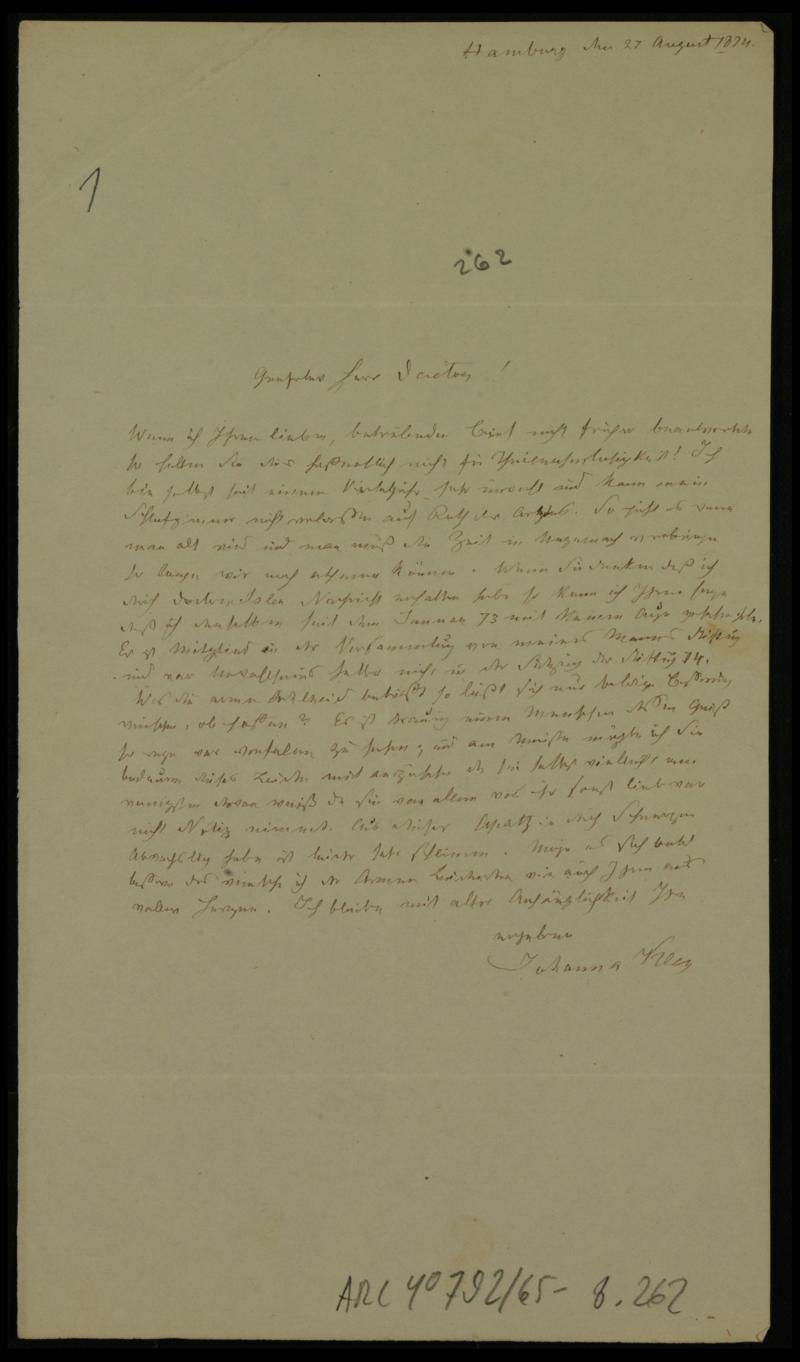 Hamburg den 27 August 1874.
1
262
Geehrter Herr Doctor!
Wenn ich Ihren lieben, betrübenden Brief nicht früher beantwortete
so halten Sie dies hoffentlich nicht für Theilnahmslosigkeit! Ich
bin selbst seit einem Vierteljahr sehr und kann mein
Schlafzimmer nicht verlassen auf Rath des Arztes. So geht es wenn
man alt wird und man muß die Zeit in Ungemach verbringen
so lange wir noch athmen können. Wenn Sie denken daß ich
durch Nachricht erhalten habe so kann ich Ihnen sagen
daß ich denselben seit dem Januar 73 mit keinem Auge gesehen habe.
Er ist Mitglied in der Versammlung von meines Mannes Stiftung
und war Unwohlseins halber nicht in der Sitzung der Stiftung 74.
Was die arme Adelheid betrifft so läßt sich nur baldige Besserung
wünschen, ob hoffen? Es ist traurig einen Menschen dessen Geist
so rege war verfallen zu sehen, und am meisten möchte ich Sie
bedauern dieses Leiden mit anzusehen da sie selbst vielleicht am
wenigsten davon weiß da sie von allem was ihr sonst lieb war
nicht Notiz nimmt. Aus dieser Apathie durch Schmerzen
Abwechslung haben ist leider sehr schlimm. Möge es sich bald
bessern das wünsche ich der Armen Leidenden wie auch Ihnen aus
vollem Herzen. Ich bleibe mit alter Anhänglichkeit Ihre
ergebene
Johanna
ARC 4° 792/65- 8.262